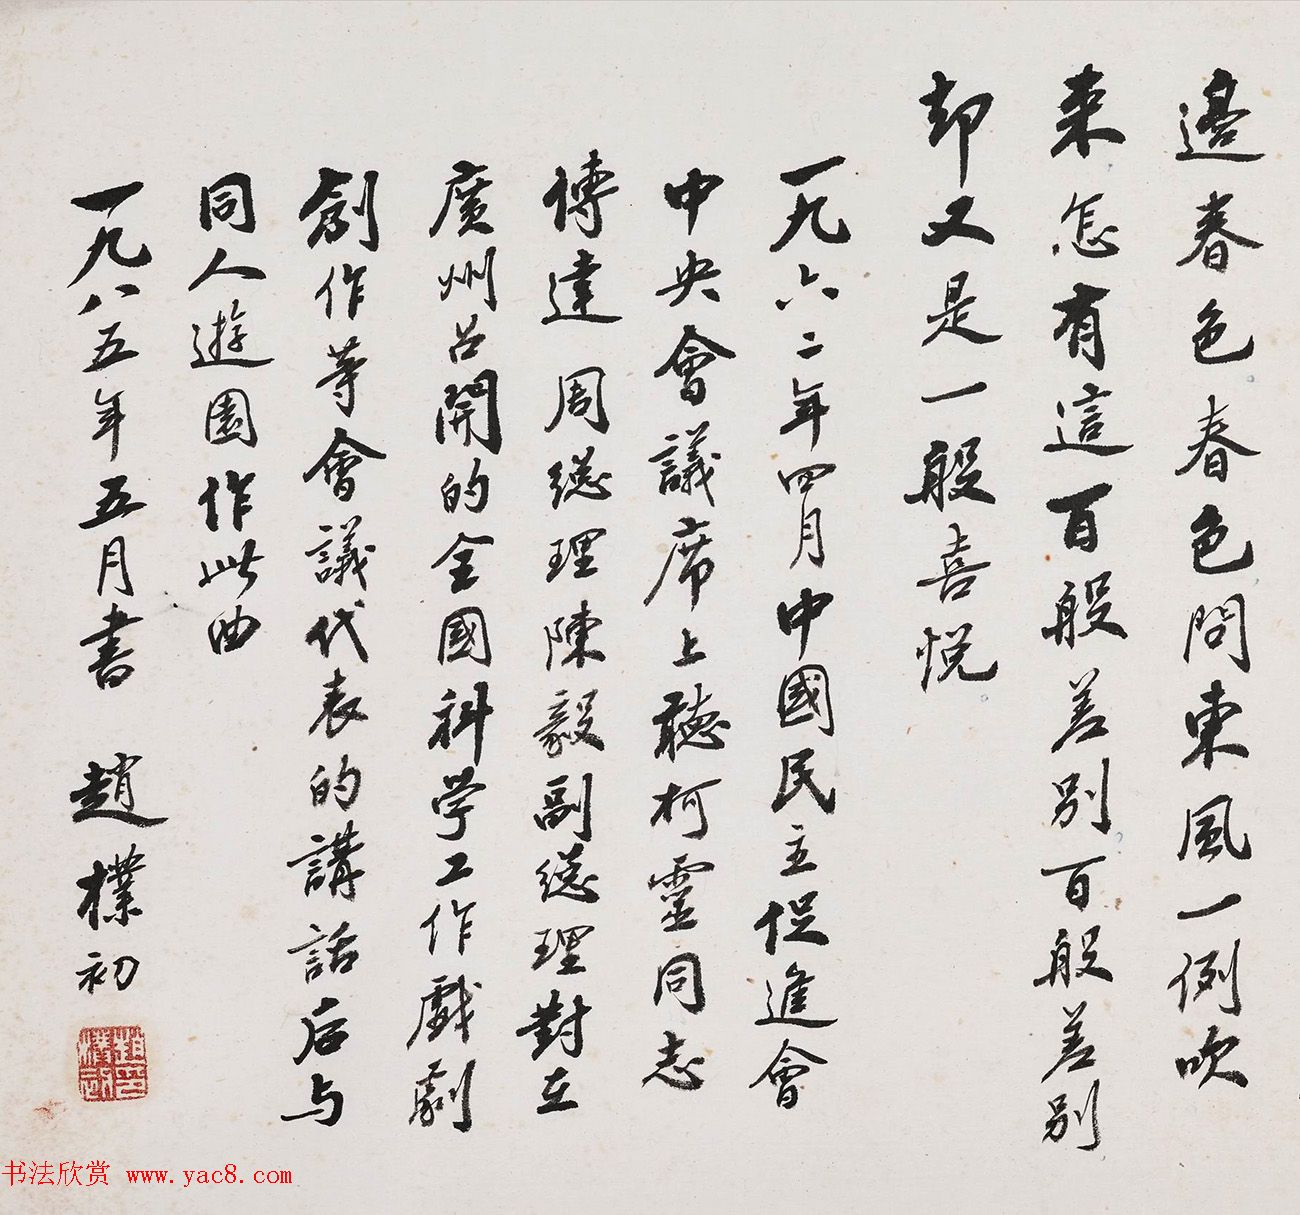 邊春色春色問東風一例吹
來怎有這百般差別百般差別
却又是一般喜悅
一九六二年四月中國民主促進會
中央會議席上聽柯靈同志
傳達周總理陳毅副總理對在
廣州召開的全國科学工作戲劇
創作等會議代表的講話后与
同人遊園作此曲
一九八五年五月書 趙樸初
趙樸初印
书法欣赏 www.yac8.com